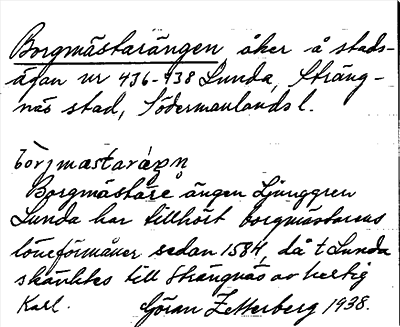 Borgmästarängen åker å stads-
ägan nr 436-438 Lunda, Sträng-
näs stad, Södermanlands l.
bo̧rjmastaräŋən
Borgmästare ängen Ljunggren
Lunda har tillhört borgmästarens
löneförmåner sedan 1584, då t Lunda
skänktes till Strängnäs av hertig
Karl. Göran Zetterberg 1938.